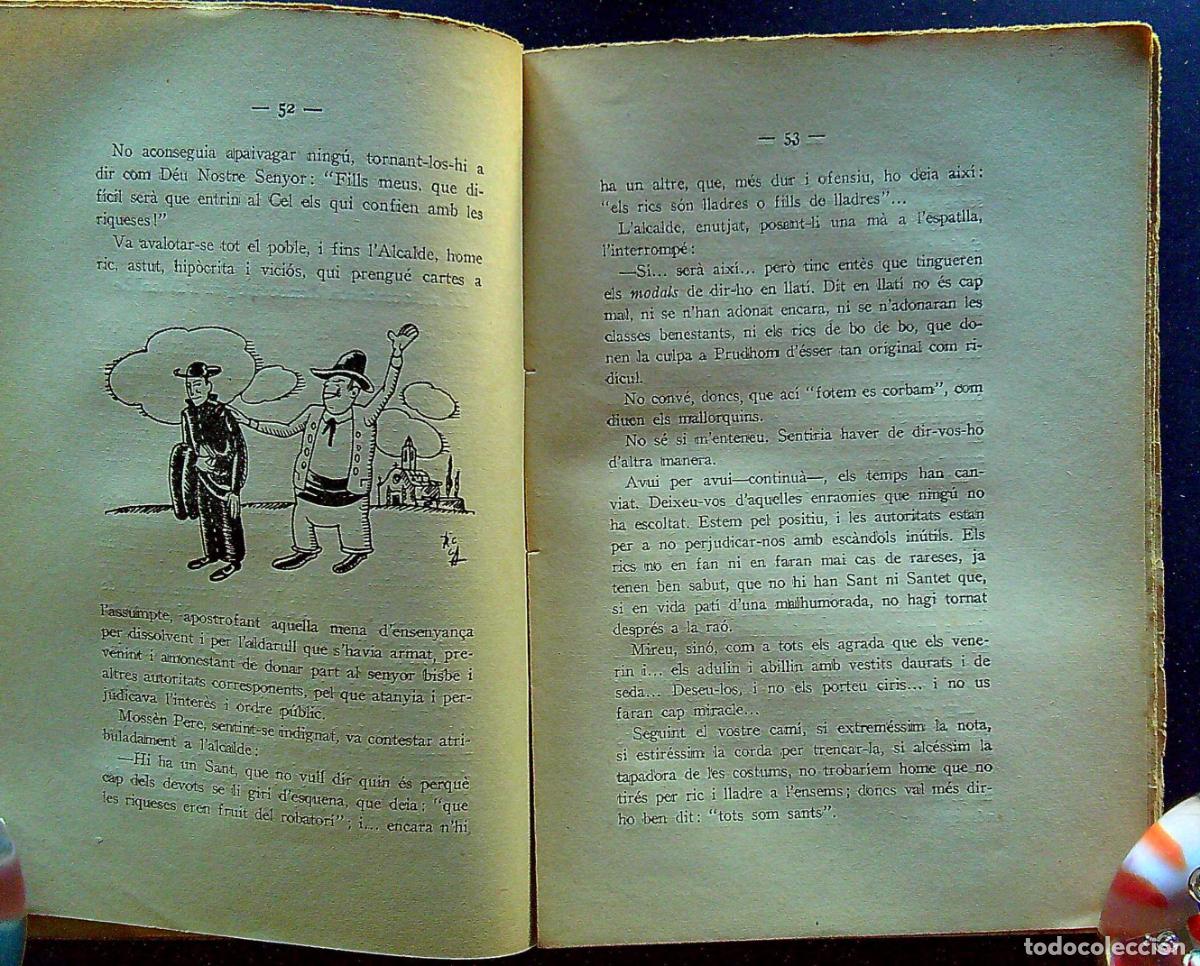 — 52 —
No aconseguia apaivagar ningú, tornant-los-hi a
dir com Déu Nostre Senyor: "Fills meus, que di-
fícil serà que entrin al Cel els qui confien amb les
riqueses!"
Va avalotar-se tot el poble, i fins l'Alcalde, home
ric, astut, hipòcrita i viciós, qui prengué cartes a
l'assumpte, apostrofant aquella mena d'ensenyança
per dissolvent i per l'aldarull que s'havia armat, pre-
venint i amonestant de donar part al senyor bisbe i
altres autoritats corresponents, pel que atanyia i per-
judicava l'interès i ordre públic.
Mossèn Pere, sentint-se indignat, va contestar atri-
buladament a l'alcalde:
—Hi ha un Sant, que no vull dir quin és perquè
cap dels devots se li giri d'esquena, que deia: "que
les riqueses eren fruit del robatori"; i... encara n'hi
— 53 —
ha un altre, que, més dur i ofensiu, ho deia així:
"els rics són lladres o fills de lladres"...
L'alcalde, enutjat, posant-li una mà a l'espatlla,
l'interrompé:
—Sí... serà així... però tinc entès que tingueren
els modals de dir-ho en llatí. Dit en llatí no és cap
mal, ni se n'han adonat encara, ni se n'adonaran les
classes benestants, ni els rics de bo de bo, que do-
nen la culpa a Prudhom d'ésser tan original com ri-
dícul.
No convé, doncs, que ací "fotem es corbam", com
diuen els mallorquins.
No sé si m'enteneu. Sentiria haver de dir-vos-ho
d'altra manera.
Avui per avui—continuà—, els temps han can-
viat. Deixeu-vos d'aquelles enraonies que ningú no
ha escoltat. Estem pel positiu, i les autoritats estan
per a no perjudicar-nos amb escàndols inútils. Els
rics no en fan ni en faran mai cas de rareses, ja
tenen ben sabut, que no hi han Sant ni Santet que,
si en vida patí d'una malhumorada, no hagi tornat
després a la raó.
Mireu, sinó, com a tots els agrada que els vene-
rin i... els adulin i abillin amb vestits daurats i de
seda... Deseu-los, i no els porteu ciris... i no us
faran cap miracle...
Seguint el vostre camí, si extreméssim la nota,
si estiréssim la corda per trencar-la, si alcéssim la
tapadora de les costums, no trobaríem home que no
tirés per ric i lladre a l'ensems; doncs val més dir-
ho ben dit: "tots som sants".
todocoleccion